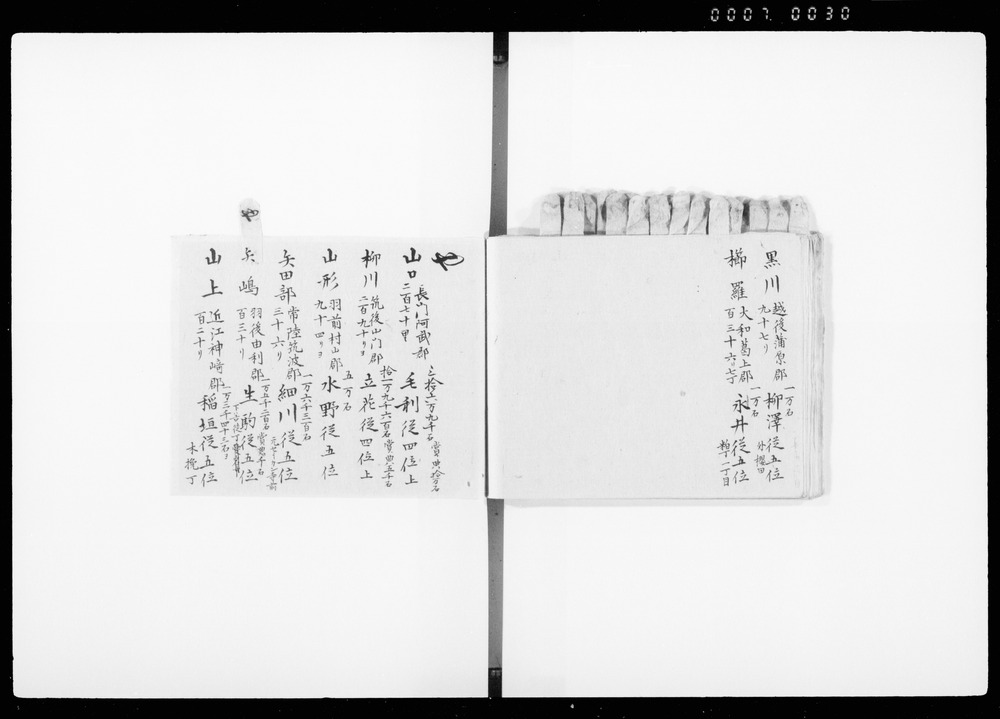 0007 0030
黒川 越後蒲原郡 一万石 柳澤従五位
九十七リ 外櫻田
櫛羅 大和葛上郡 一万石 永井従五位
百三十六リ 一丁目
や
山口 長門阿武郡 三拾六万九千石 賞典拾万石 毛利従四位上
二百七十
柳川 筑後山門郡 拾一万九千六百石 賞典五千石 立花従四位上
二百九十リヨ
山形 羽前村山郡 五万石 水野従五位
九十四リヨ
矢田部 常陸筑波郡 一万六千三百石 細川従五位
三十六リ
矢嶋 羽後由利郡 一万五千二百石 賞典千石 生駒従五位
百三十リ
山上 近江神崎郡 一万三千四十三石ヨ 稲垣従五位
百二十リ 木挽丁
や